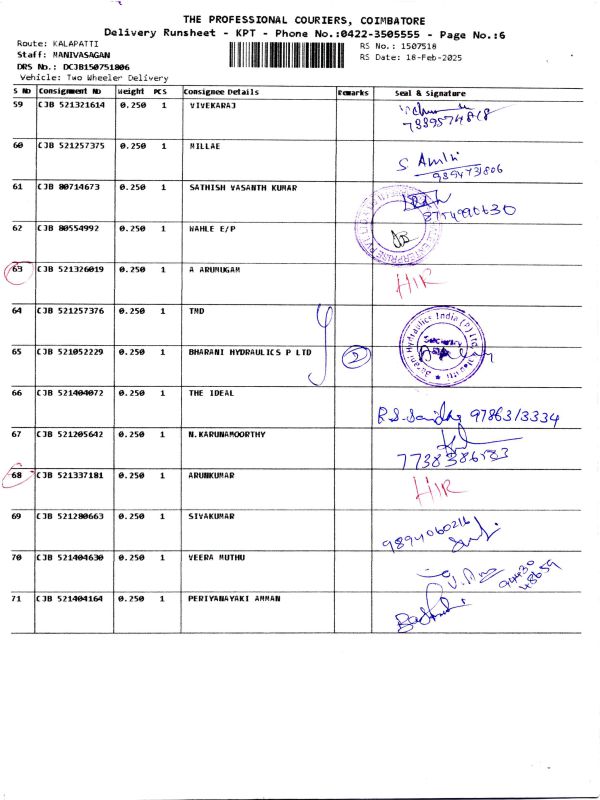 THE PROFESSIONAL COURIERS, COIMBATORE
Delivery Runsheet - KPT - Phone No.:0422-3505555 - Page No.:6
Route: KALAPATTI
RS No.: 1507518
Staff: MANIVASAGAN
RS Date: 18-Feb-2025
DRS No.: DCJB150751806
Vehicle: Two Wheeler Delivery
S No Consignment No Weight PCS Consignee Details Remarks Seal & Signature
59 CJB 521321614 0.250 1 VIVEKARAJ
60 CJB 521257375 0.250 1 MILLAE
S Amlni
9894731806
61 CJB 80714673 0.250 1 SATHISH VASANTH KUMAR
8754990630
62 CJB 80554992 0.250 1 WAHLE E/P
63 CJB 521326019 0.250 1 A ARUMUGAM HIR
64 CJB 521257376 0.250 1 TMD
65 CJB 521052229 0.250 1 BHARANI HYDRAULICS P LTD 2
66 CJB 521404072 0.250 1 THE IDEAL
97863/3334
67 CJB 521205642 0.250 1 N.KARUNAMOORTHY
7738386583
68 CJB 521337181 0.250 1 ARUNKUMAR HIR
69 CJB 521280663 0.250 1 SIVAKUMAR
9894060216
70 CJB 521404630 0.250 1 VEERA MUTHU
94430
48659
71 CJB 521404164 0.250 1 PERIYANAYAKI AMMAN